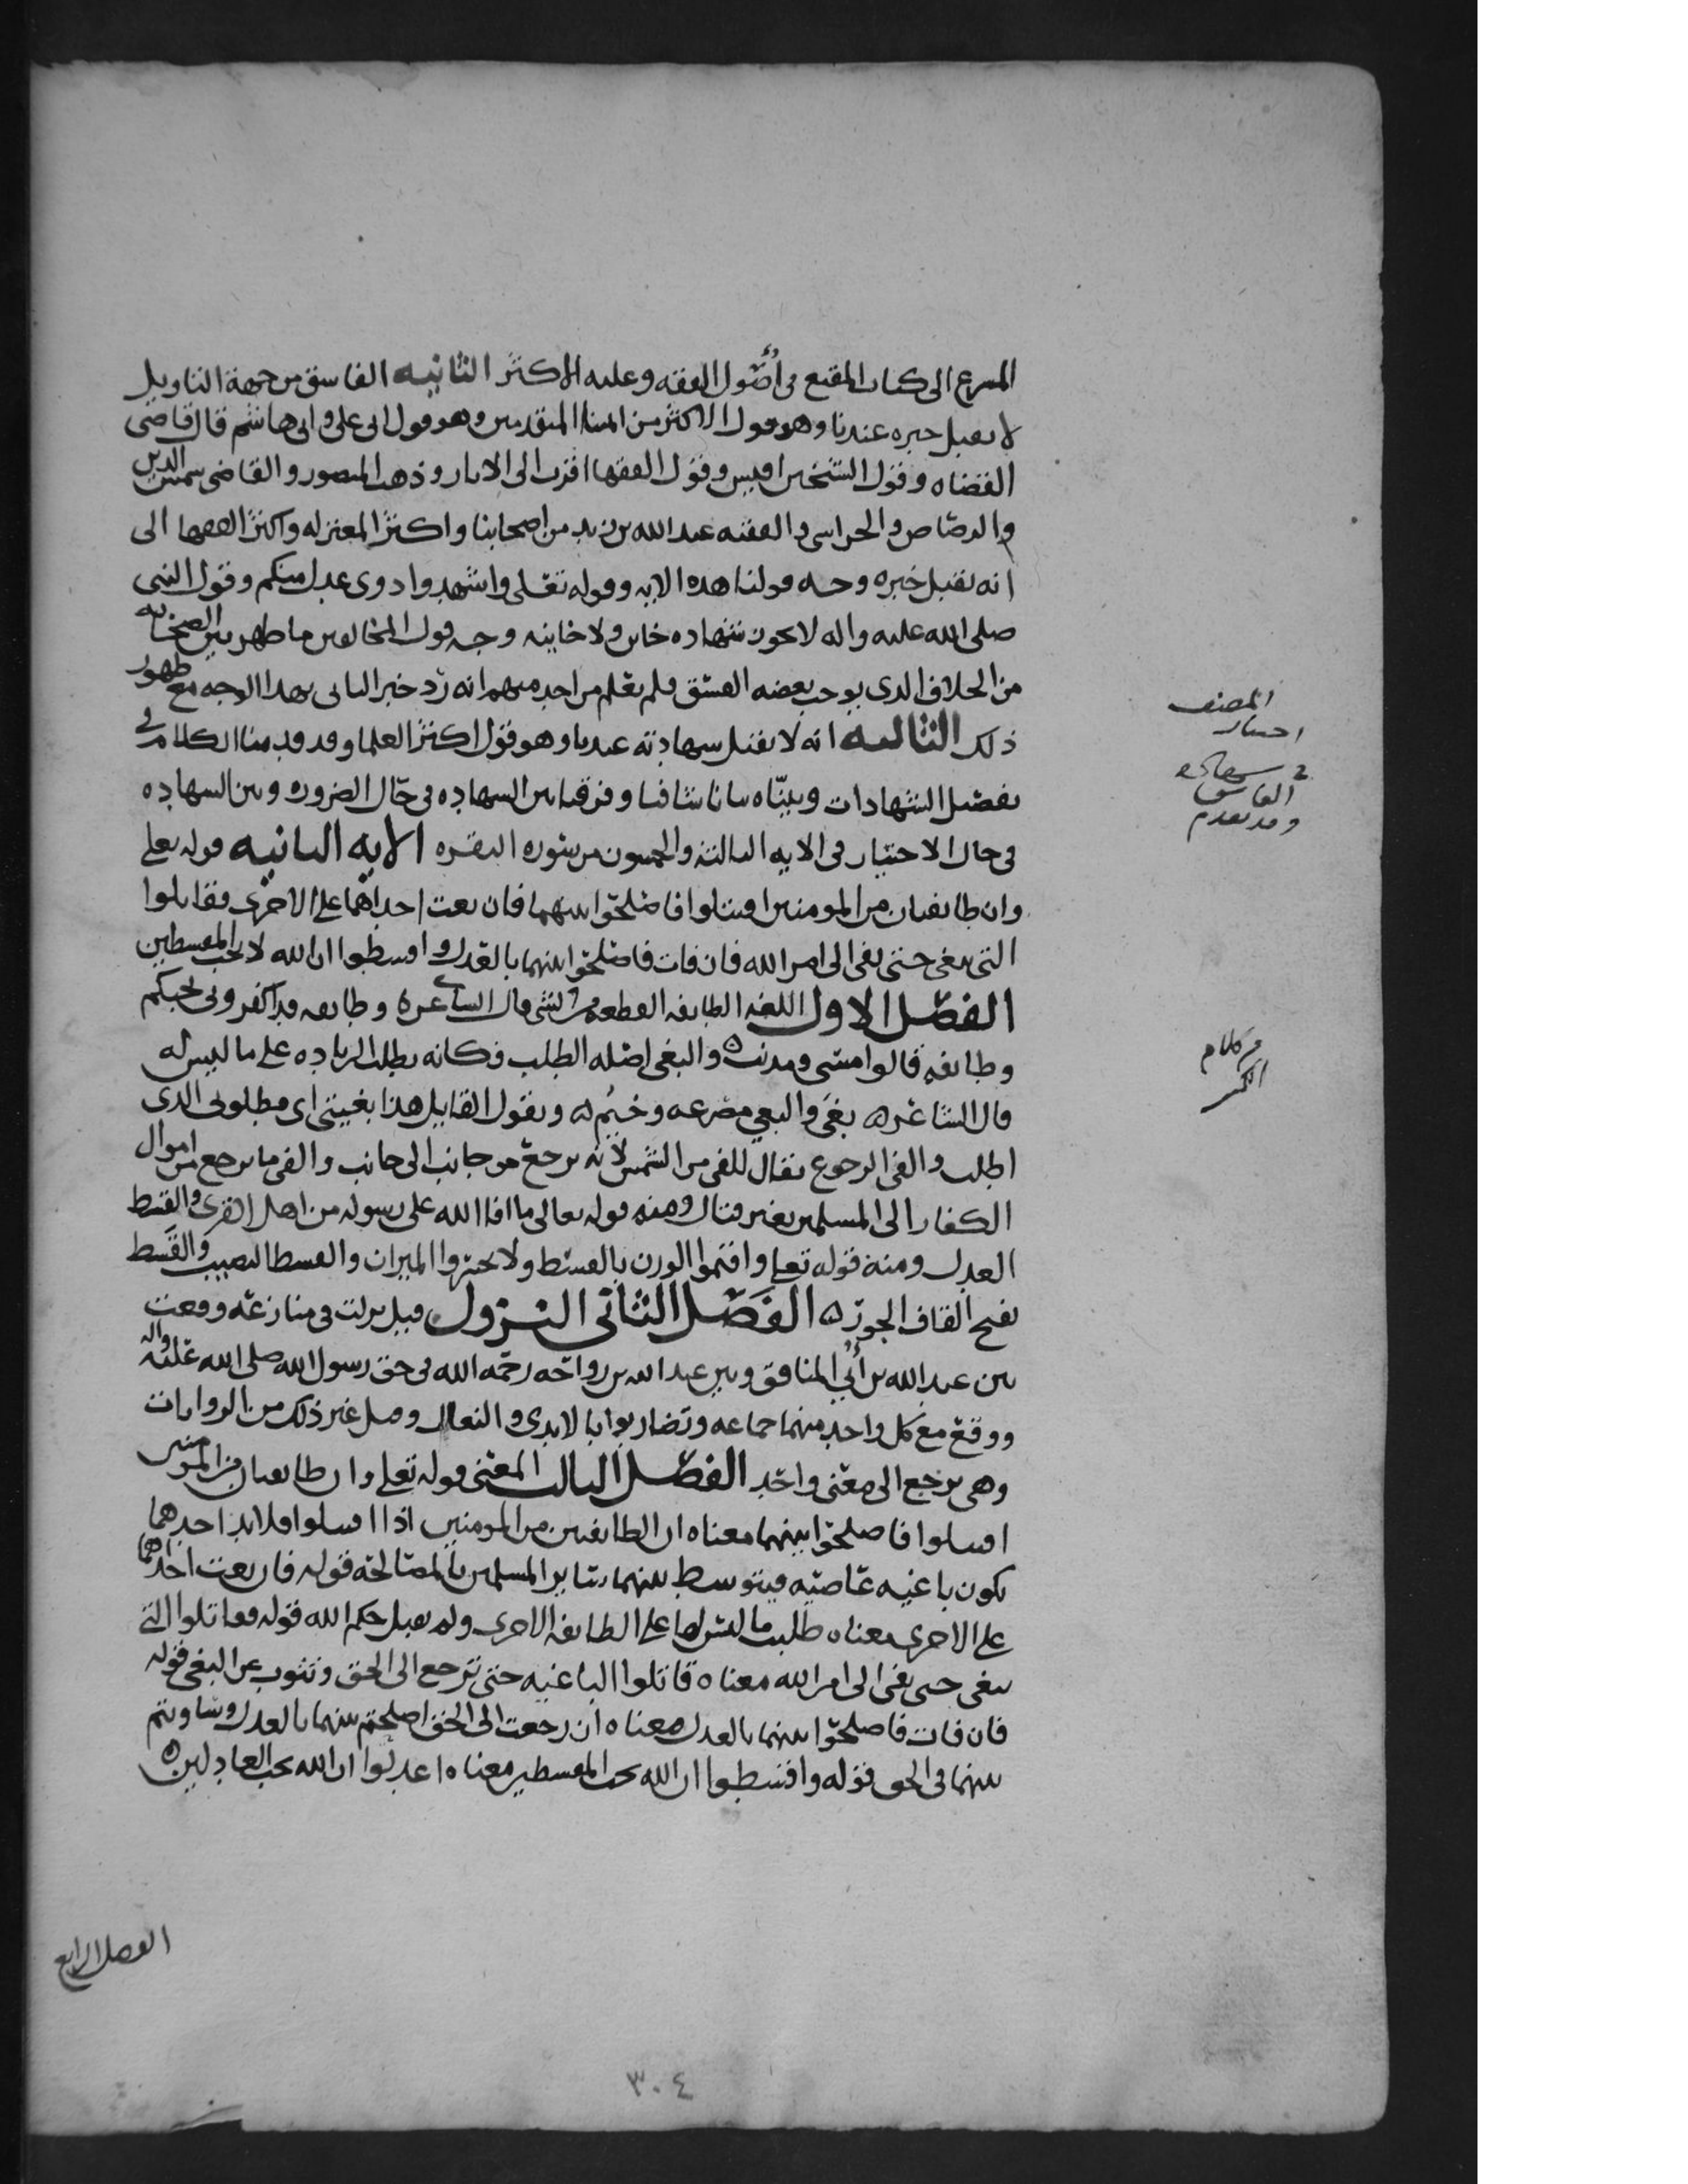 المسرع الى كتاب المقنع في أصول الفقه وعليه الاكثر الثانيه الفاسق من جهة التاويل
لا يقبل خبره عندنا وهو قول الاكثر من ايمتنا المتقدمين وهو قول ابي علي وابي هاشم قال قاضي
القضاه وقول الشيخين اقيس وقول الفقها اقرب الى الاثار وذهب المنصور والقاضي شمس الدين
والرصاص والحراسي والفقيه عبد الله بن زيد من اصحابنا واكثر المعتزله واكثر الفقها الى
انه يقبل خبره وجه قولنا هذه الايه وقوله تعلى واشهدوا ذوى عدل منكم وقول النبي
صلى الله عليه واله لا يجوز شهاده خاين ولا خاينه وجه قول المخالفين ما ظهر بين الصحابه
من الخلاف الذي يوجب بعضه الفسق فلم يعلم من احد منهم انه رد خبر الثاني بهذا الوجه مع ظهور
ذلك الثالثه انه لا يقبل شهادته عندنا وهو قول اكثر العلما وقد قدمنا الكلام في
تفصيل الشهادات وبيناه بيانا شافيا وفرقنا بين الشهاده في حال الضروره وبين الشهاده
في حال الاختيار في الايه الثالثة والخمسون من سورة البقره الايه الثانيه قوله تعلى
وان طايفتان من المومنين اقتتلوا فاصلحوا بينهما فان بغت احداهما على الاخرى فقاتلوا
التي تبغي حتى تفي الى امر الله فان فات فاصلحوا بينهما بالعدل واقسطوا ان الله لا يحب المقسطين
الفصل الاول اللغه الطايفه القطعه من الشي قال الشاعر ه وطايفه قد اكفروني بحبكم
وطايفه قالوا مسي ومذنب ه والبغي اصله الطلب فكانه يطلب الزياده على ما ليس له
قال الشاعر ه بغى والبغي مصرعه وخيم ه ويقول القايل هذا بغيتي اي مطلوبي الذي
اطلب والفي الرجوع يقال للفي من الشمس لانه يرجع من جانب الى جانب والفي ما يرجع من اموال
الكفار الى المسلمين بغير قتال ومنه قوله تعالى ما افا الله على رسوله من اهل القرى والقسط
العدل ومنه قوله تعلى واقيموا الوزن بالقسط ولا تخسروا الميزان والقسط النصيب والقسط
بفتح القاف الجور ه الفصل الثاني النزول قيل نزلت في منازعه وقعت
بين عبد الله بن أبي المنافق وبين عبد الله بن رواحه رحمه الله في حق رسول الله صلى الله عليه واله
ووقع مع كل واحد منهما جماعه وتضاربوا بالايدي والنعال وقيل غير ذلك من الروايات
وهي ترجع الى معنى واحد الفصل الثالث المعنى قوله تعلى وان طايفتان من المومنين
اقتتلوا فاصلحوا بينهما معناه ان الطايفتين من المومنين اذا اقتتلوا فلا بد احدهما
تكون باغيه عاصيه فيتوسط بينهما ساير المسلمين بالمصالحه قوله فان بغت احداهما
على الاخرى معناه طلبت ما ليس لها على الطايفه الاخرى ولم يقبل حكم الله قوله فقاتلوا التي
تبغي حتى تفي الى امر الله معناه قاتلوا الباغيه حتى ترجع الى الحق وتتوب عن البغي قوله
فان فات فاصلحوا بينهما بالعدل معناه ان رجعت الى الحق اصلحتم بينهما بالعدل وساويتم
بينهما في الحق قوله واقسطوا ان الله يحب المقسطين معناه اعدلوا ان الله يحب العادلين ه
المصنف
اختيار
في شهادة
الفاسق
وقد تقدم
من كلام
الفصل الرابع
٣٠٤